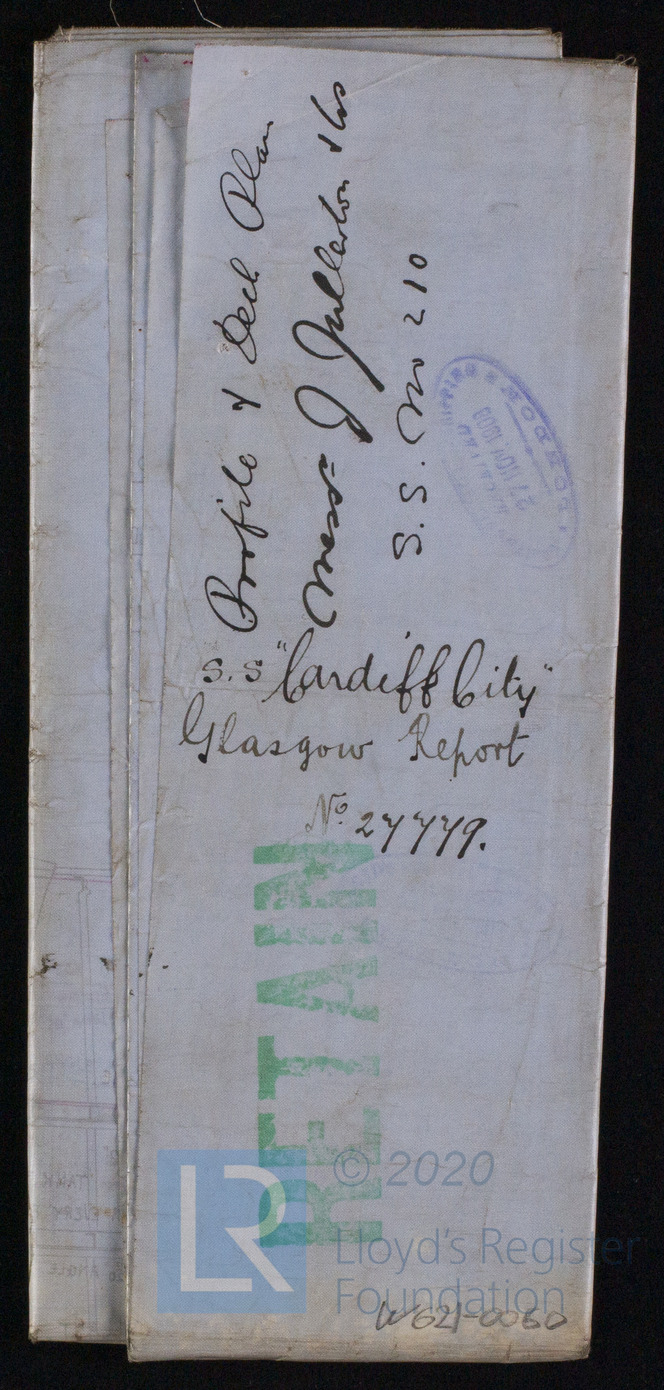 Profile & Deck Plan
Messrs J Fullarton & Co
S.S. No 210
S.S "Cardiff City"
Glasgow Report
No. 27779.
RETAIN
27 NOV
LONDON
LR
© 2020
Lloyd's Register
Foundation
W621-0050
TANK
EVERY
ANGLE